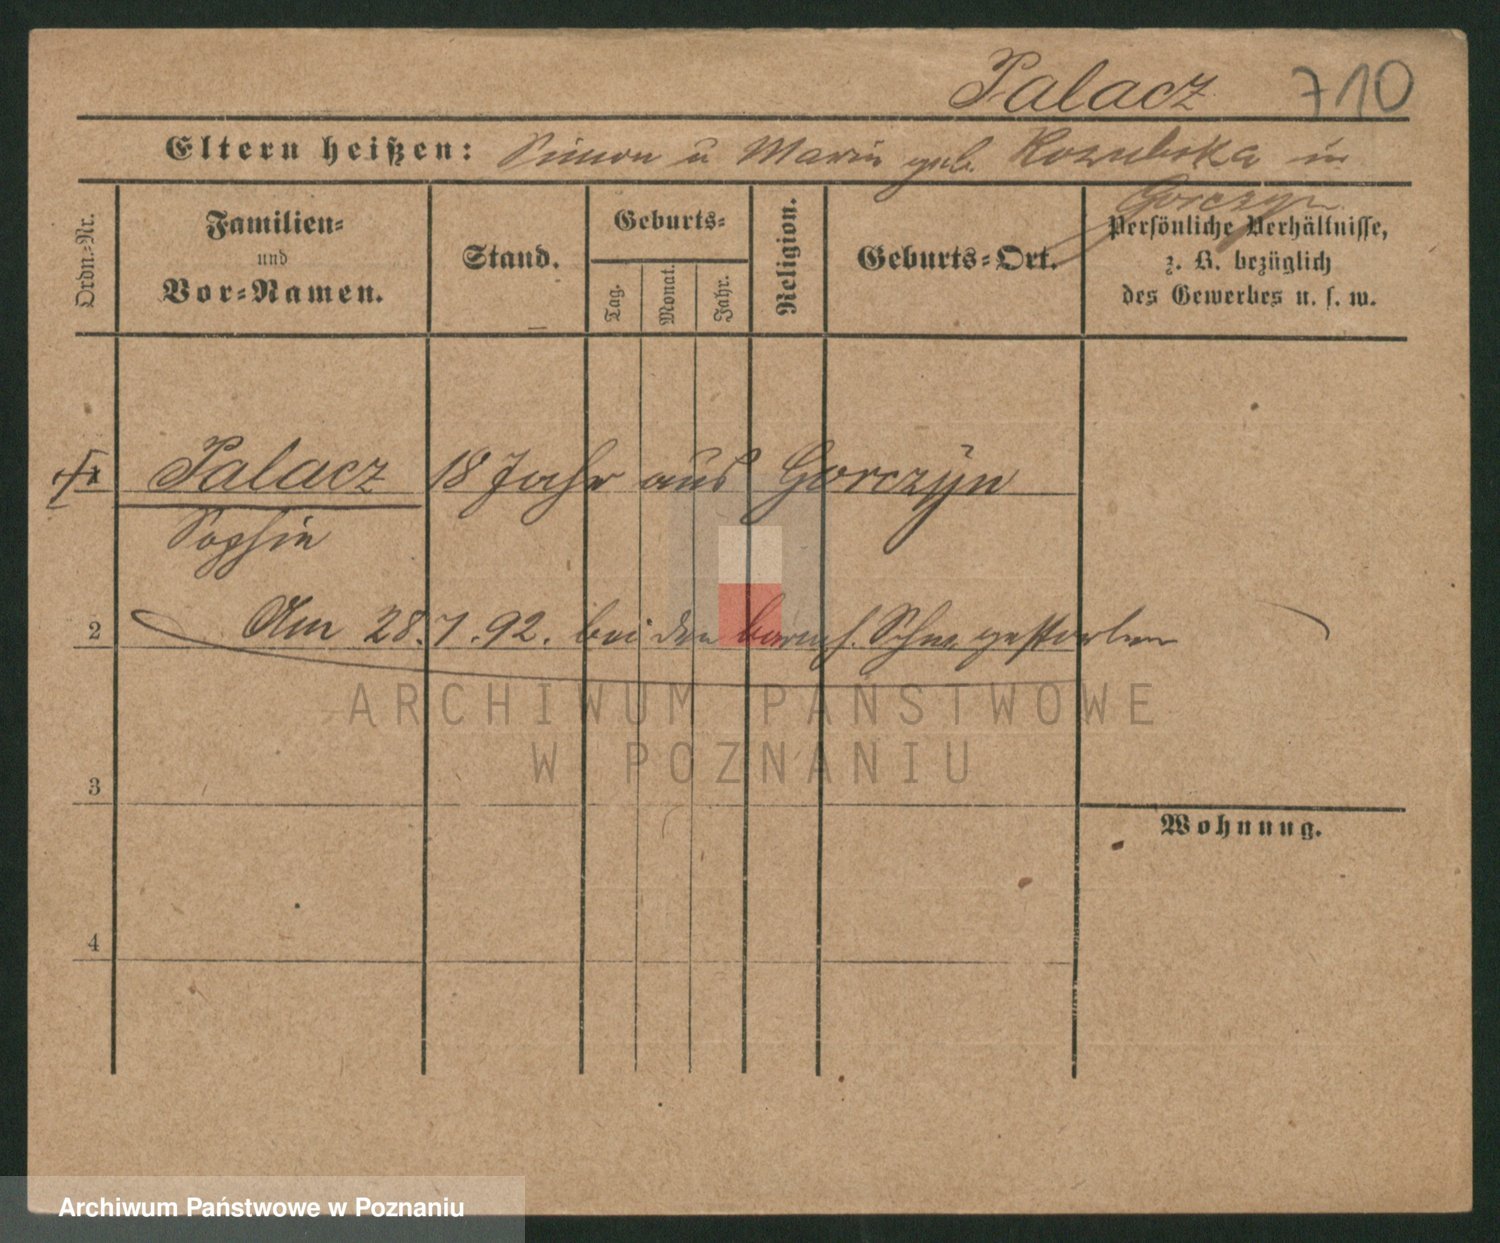 Palacz 710
Eltern heißen: Simon u Marie geb. Kozubska in
Gorczyn
Ordn.-Nr.
Familien-
und
Vor-Namen.
Stand.
Geburts-
Tag.
Monat.
Jahr.
Religion.
Geburts-Ort.
Persönliche Verhältnisse,
z. B. bezüglich
des Gewerbes u. s. w.
Palacz 18 Jahr aus Gorczyn
Sophie
2 Am 28.7.92. bei den barmh. Schw. gestorben
ARCHIWUM PAŃSTWOWE
W POZNANIU
3
Wohnung.
4
Archiwum Państwowe w Poznaniu